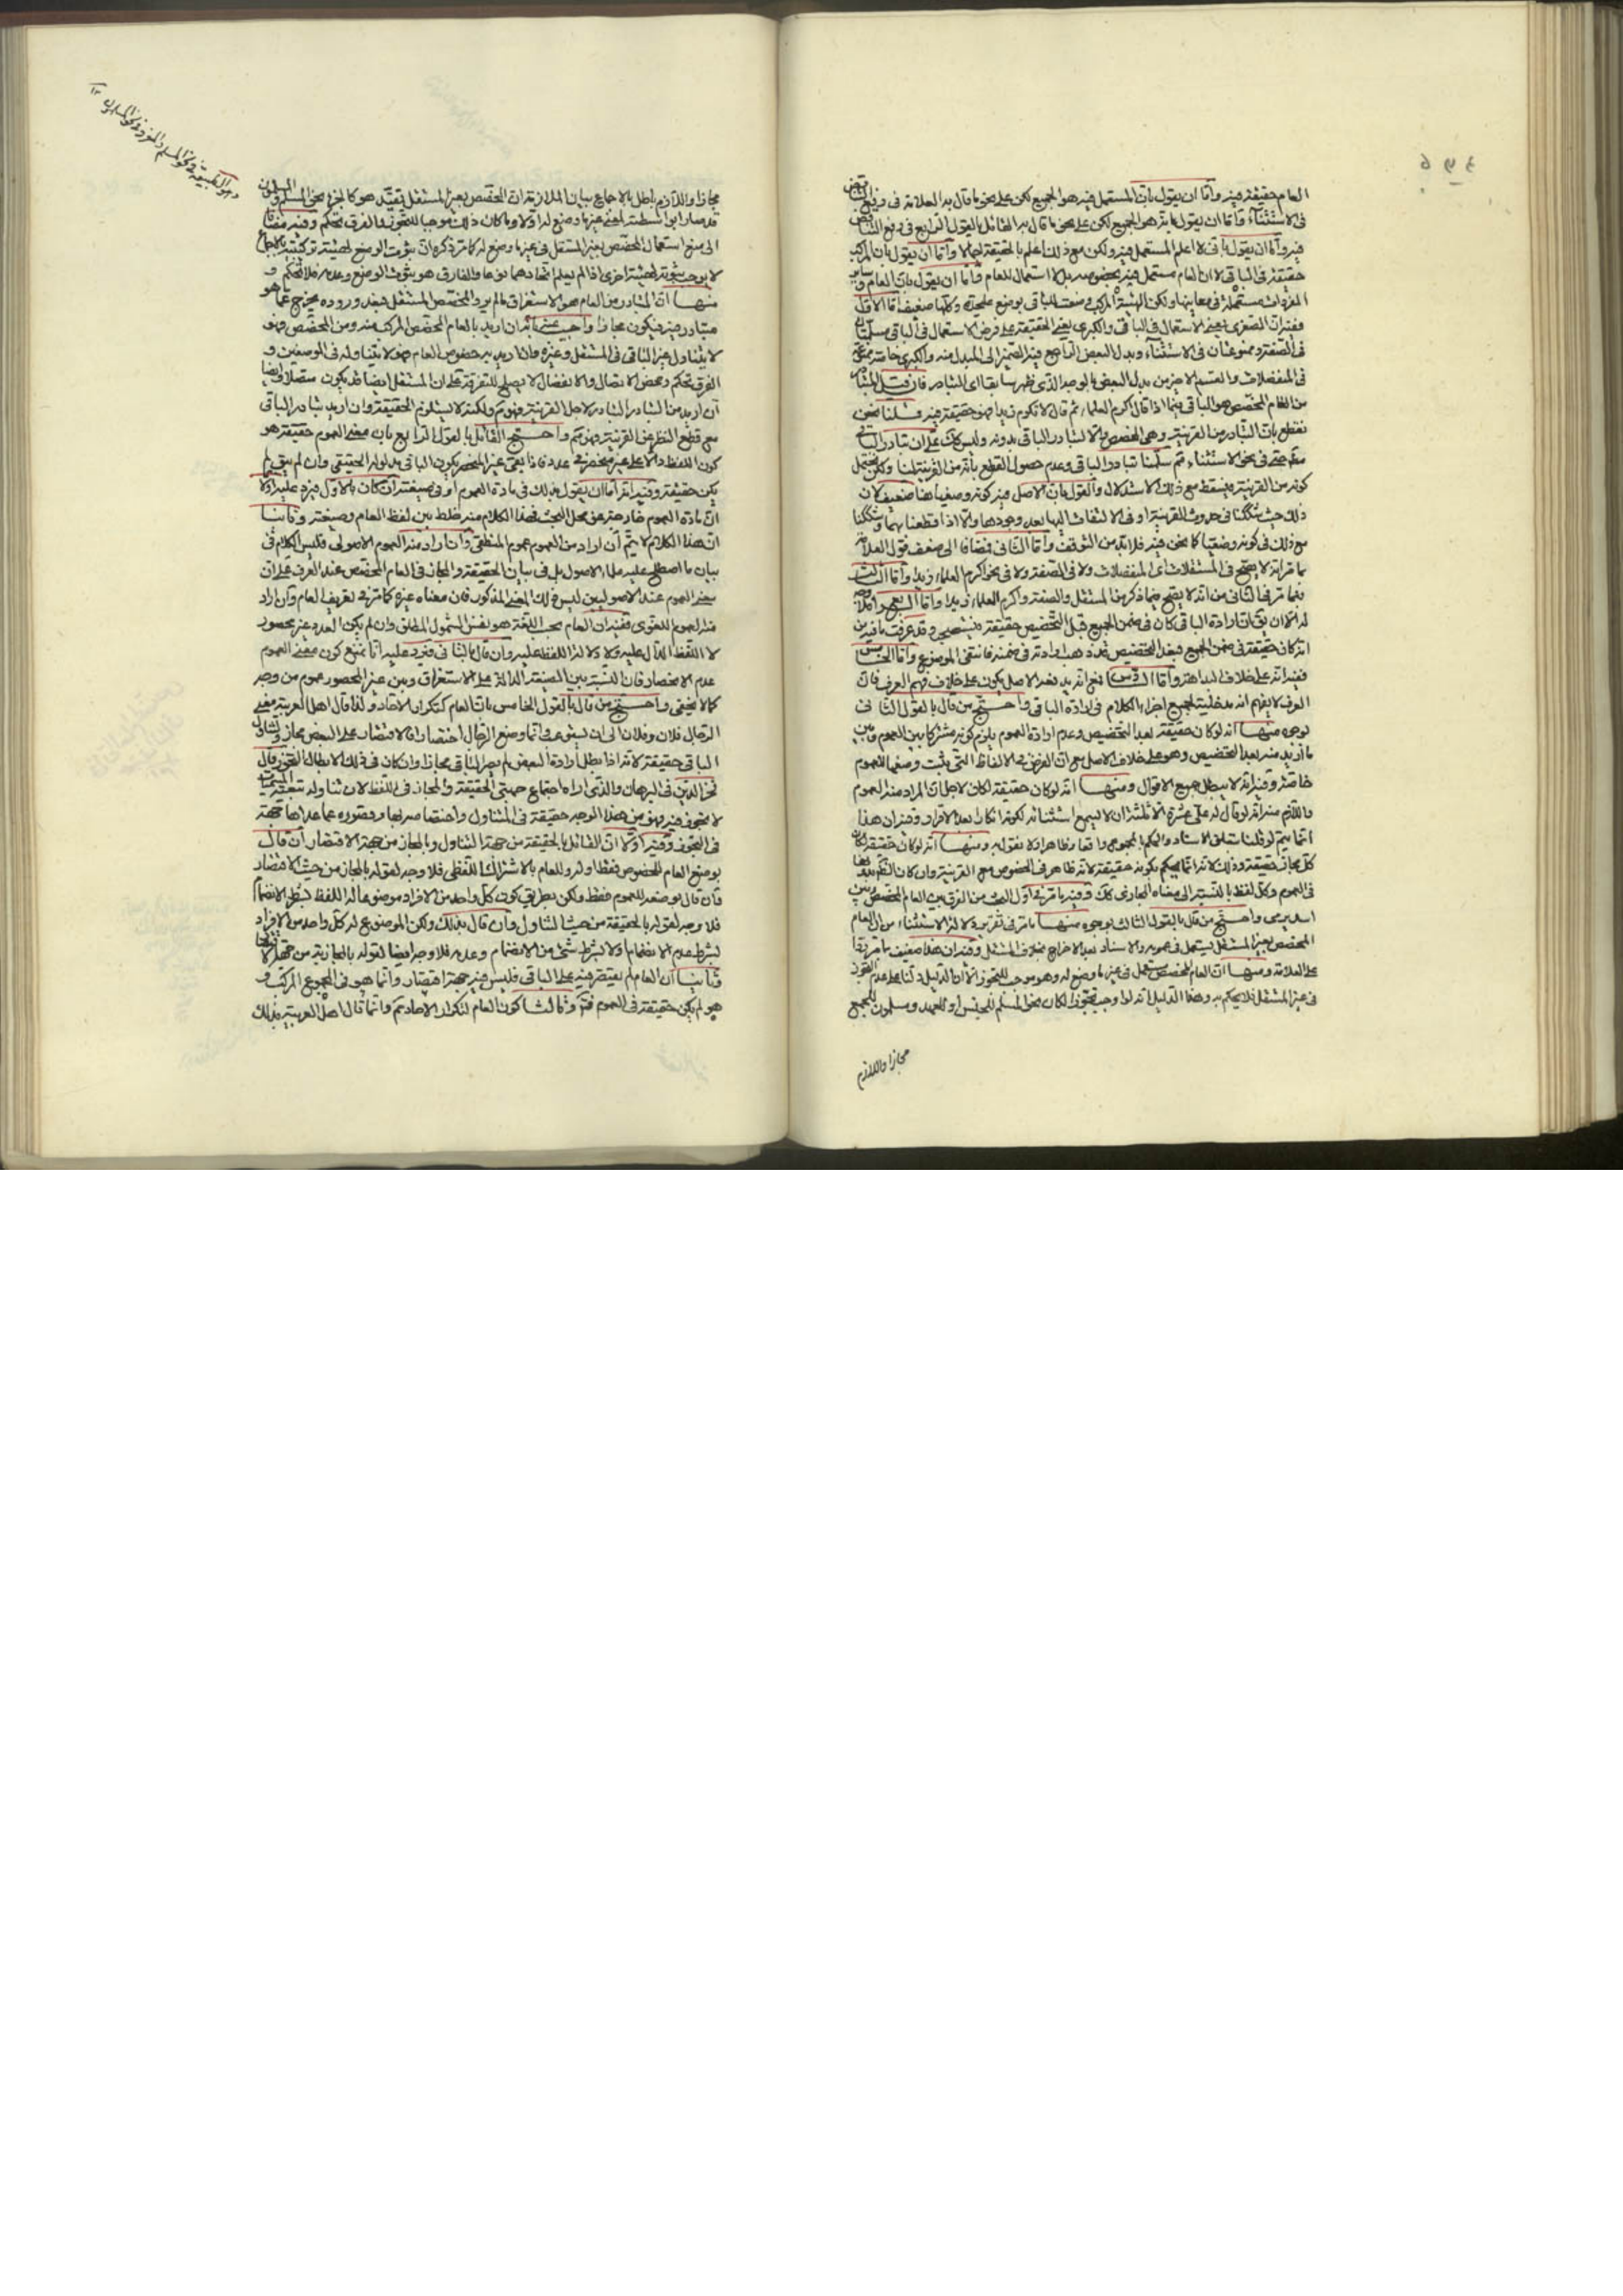 العام حقيقة فيه واما ان يقول بان المستعمل فيه هو الجميع لكن على نحو ما قال به العلامة في دفع التناقض
في الاستثناء واما ان يقول بانه هو الجميع لكن على نحو ما قال به القائل بالقول الرابع في دفع التناقض
فيه واما ان يقول باني لا اعلم المستعمل فيه ولكن مع ذلك اعلم بالحقيقة اجمالا واما ان يقول بان المركب
حقيقة في الباقي لا ان العام مستعمل فيه بخصوصه بل لا استعمال للعام واما ان يقول بان العام وساير
المفردات مستعملة في معانيها ولكن الهيئة المركبة وضعت للباقي بوضع عليحدة وكلها ضعيف اما الاول
ففيه ان الصغرى يعني الاستعمال في الباقي والكبرى يعني الحقيقة على فرض الاستعمال في الباقي مسلمتان
في الصفة وممنوعتان في الاستثناء وبدل البعض الراجع فيه الضمير الى المبدل منه والكبرى خاصة ممنوعة
في المنفصلات والقسم الاخر من بدل البعض بالوجه الذي ظهر سابقا اي التبادر فان قيل المتبادر
من العام المخصص هو الباقي فيما اذا قال اكرم العلماء ثم قال لا تكرم زيدا فهو حقيقة فيه قلنا نحن
نقطع بان التبادر من القرينة وهي المخصص والا لتبادر الباقي بدونه وليس كك على ان تبادر الباقي
مقدوح في نحو الاستثناء ثم سلمنا تبادر الباقي وعدم حصول القطع بانه من القرينة لنا ولكن يحتمل
كونه من القرينة فيسقط مع ذلك الاستدلال والقول بان الاصل فيه كونه وضعيا هنا ضعيف لان
ذلك حيث شككنا في حدوث القرينة او في الالتفات اليها بعد وجودها والا اذا قطعنا بهما وشككنا
مع ذلك في كونه وضعيا كما نحن فيه فلا بد من التوقف واما الثاني فمضافا الى ضعف قول العلامة
بما مر انه لا يصح في المستقلات اي المنفصلات ولا في الصفة ولا في نحو اكرم العلماء زيدا واما الثالث
فبما مر في الثاني من انه لا يصح فيما ذكر من المستقل والصفة واكرم العلماء زيدا واما الرابع فلا وجه
له الا ان يق ان ارادة الباقي كان في ضمن الجميع قبل التخصيص حقيقة فيستصحب وقد عرفت ما فيه من
انه كان حقيقة في ضمن الجميع فبعد التخصيص قد ذهب ارادته في ضمنه فانتفى الموضوع واما الخامس
ففيه انه على خلاف البداهة واما السادس فمع انه بعيد الاصل يكون على خلاف فهم العرف فان
العرف لا يفهم انه مدخلية لجميع اجزاء الكلام في ارادة الباقي واحتج من قال بالقول الثاني
بوجوه منها انه لو كان حقيقة بعد التخصيص وعدم ارادة العموم يلزم كونه مشتركا بين العموم وبين
ما اريد منه بعد التخصيص وهو على خلاف الاصل مع ان الفرض في الالفاظ التي يثبت وضعها للعموم
خاصة وفيه انه لا يبطل جميع الاقوال ومنها انه لو كان حقيقة لكان لاجل ان المراد منه العموم
واللازم منه انه لو قال له علي عشرة الا ثلثة ان لا يسمع استثنائه لكونه انكارا بعد الاقرار وفيه ان هذا
انما يتم لو قلنا بتعلق الاسناد والحكم بالمجموع واقعا وظاهرا ولا نقول به ومنها انه لو كان حقيقة لكان
كل مجاز حقيقة وذلك لانه انما يحكم بكونه حقيقة لانه ظاهر في الخصوص مع القرينة وان كان
في العموم وكل لفظ بالنسبة الى معناه المجازي كك وفيه ما مر في اول البحث من الفرق بين العام المخصص وبين
اسد يرمي واحتج من قال بالقول الثالث بوجوه منها ما مر في تقرير دلالة الاستثناء من ان العام
المخصص بغير المستقل يستعمل في عمومه والاسناد بعد الاخراج بخلاف المستقل وفيه ان هذا ضعيف بما مر
على العلامة ومنها ان العام المخصص مستعمل في غير ما وضع له وهو موجب للتجوز الا ان الدليل دلنا على عدم التجوز
في غير المستقل فلا يحكم به وهذا الدليل انه لو اوجب تجوزا لكان نحو المسلم للجنس او للعهد ومسلمون للجمع
مجازا واللازم
مجازا واللازم باطل بالاجماع بيان الملازمة ان المخصص بغير المستقل يتقيد هو كالجزء نحو المسلم والمسلمون
قد صار بواسطته لمعنى غير ما وضع له اولا وما كان ذلك موجبا للتجوز فالفرق تحكم وفيه مضافا
الى منع استعمال المخصص بغير المستقل في غير ما وضع له كما مر ذكره ان ثبوت الوضع لهيئة تركيبية بالاجماع
لا يوجب ثبوته لهيئة اخرى اذا لم يعلم اتحادهما نوعا والفارق هو ثبوت الوضع وعدمه فلا تحكم و
منها ان المتبادر من العام هو الاستغراق ما لم يرد المخصص المستقل فبعد وروده يخرج عما هو
متبادر فيه فيكون مجازا واجيب عنه بانه ان اريد بالعام المخصص المركب منه ومن المخصص فهو
لا يتناول غير الباقي في المستقل وغيره وان اريد به خصوص العام فهو لا يتناوله في الموضعين و
الفرق تحكم ومحض الاتصال والانفصال لا يصلح للتفرقة على ان المستقل ايضا قد يكون متصلا وايضا
ان اريد من التبادر التبادر لاجل القرينة فهو ثم ولكنه لا يستلزم الحقيقة وان اريد تبادر الباقي
مع قطع النظر عن القرينة فهو ثم واحتج القائل بالقول الرابع بان معنى العموم حقيقة هو
كون اللفظ دالا على غير منحصر في عدد فاذا بقي غير المنحصر يكون الباقي مدلوله الحقيقي وان لم يبق لم
يكن حقيقة وفيه انه اما ان يقول بذلك في مادة العموم او في صيغته ان كان الاول فيرد عليه اولا
ان مادة العموم خارجة عن محل البحث فهذا الكلام منه خلط بين لفظ العام وصيغته وثانيا
ان هذا الكلام لا يتم ان اراد من العموم عموم المنطقي وان اراد منه العموم الاصولي فليس الكلام في
بيان ما اصطلح عليه علماء الاصول بل في بيان الحقيقة والمجاز في العام المخصص عند العرف على ان
معنى العموم عند الاصوليين ليس ذلك المعنى المذكور فان معناه غيره كما مر في تعريف العام وان اراد
منه العموم اللغوي ففيه ان العام بحسب اللغة هو نفس الشمول المطلق وان لم يكن العدد غير محصور
لا اللفظ الدال عليه ولا دلالة اللفظ عليه وان قال بالثاني فيرد عليه انا نمنع كون معنى العموم
عدم الانحصار فان النسبة بين الصيغة الدالة على الاستغراق وبين غير المحصور عموم من وجه
كما لا يخفى واحتج من قال بالقول الخامس بان العام كتكرار الاحاد ولذا قال اهل العربية معنى
الرجال فلان وفلان الى ان يستوعب وانما وضع الرجال اختصارا فالاقتصار على البعض مجاز وتناول
الباقي حقيقة لانه اذا بطل ارادة البعض لم يصر الباقي مجازا وان كان في ذلك الابطال التجوز وقال
فخر الدين في البرهان والذي اراه اجتماع جهتي الحقيقة والمجاز في اللفظ لان تناوله لبقية المسميات
لا تجوز فيه فهو من هذا الوجه حقيقة في المتناول واختصاصه بها وقصوره عما عداها جهة
في التجوز وفيه اولا ان القائل بالحقيقة من جهة التناول وبالمجاز من جهة الاقتصار ان قال
بوضع العام للخصوص فقط او له وللعام بالاشتراك اللفظي فلا وجه لقوله بالمجاز من حيث الاقتصار
وان قال بوضعه للعموم فقط ولكن بطريق كون كل واحد من الافراد موضوعا له اللفظ بشرط الانضمام
فلا وجه لقوله بالحقيقة من حيث التناول وان قال بذلك ولكن الموضوع له كل واحد من الافراد
لا بشرط عدم الانضمام ولا بشرط شيء من الانضمام وعدمه فلا وجه ايضا لقوله بالمجازية من جهة الاقتصار
وثانيا ان العام لم يقتصر فيه على الباقي فليس فيه جهة اقتصار وانما هو في المجموع المركب و
هو لم يكن حقيقة في العموم فتم وثالثا كون العام لتكرار الاحاد ثم وانما قال اهل العربية بذلك